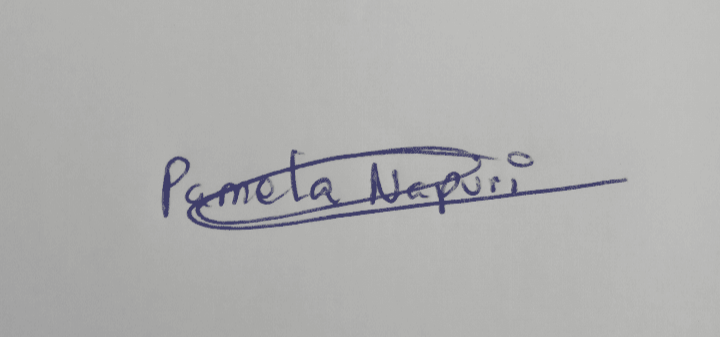 Pamela Napuri